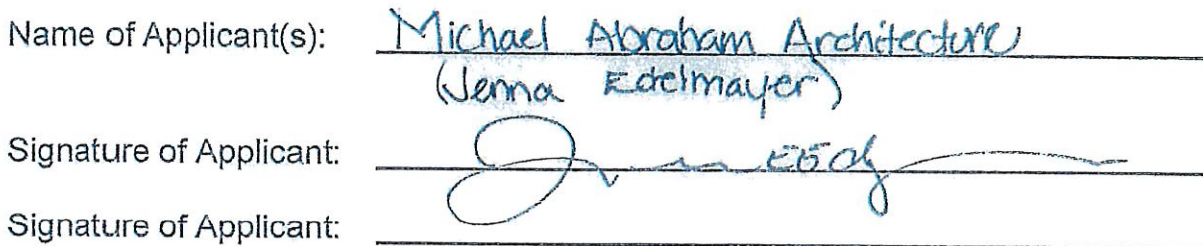 Name of Applicant(s): Michael Abraham Architecture
(Jenna Edelmayer)
Signature of Applicant:
Signature of Applicant: